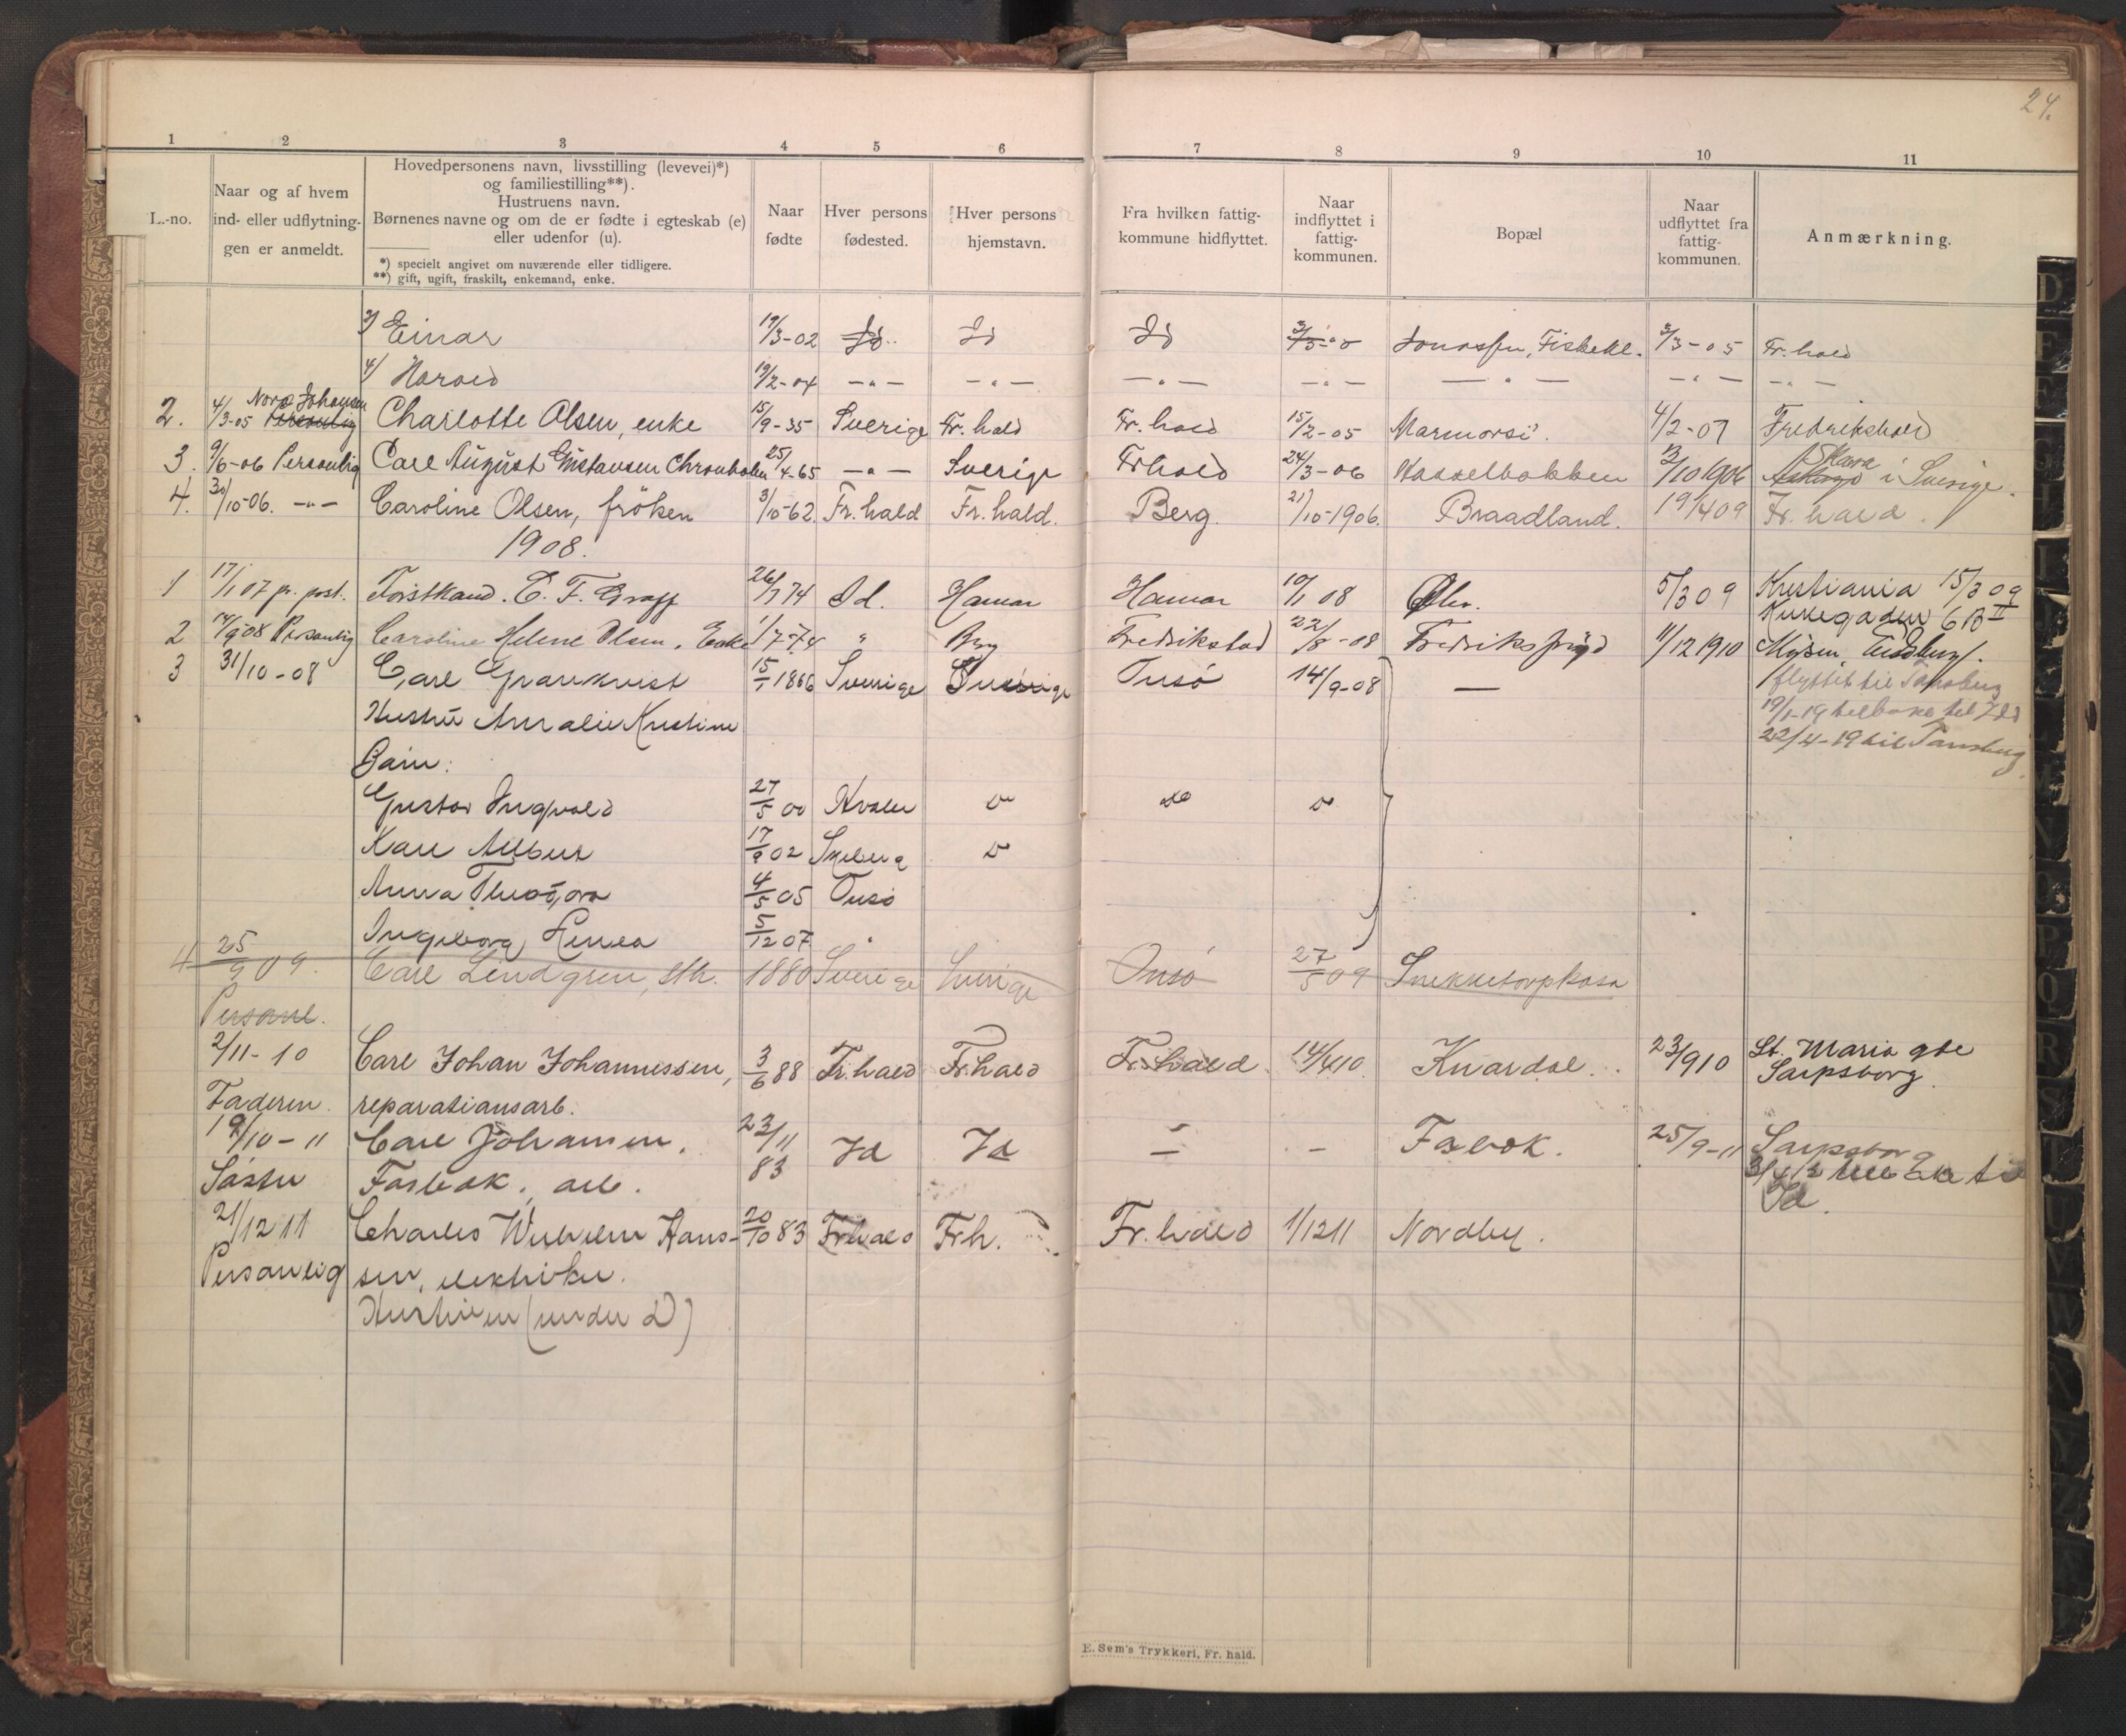 24.
1 2 3 4 5 6 7 8 9 10 11
L.-no.
Naar og af hvem
ind- eller udflytnin-
gen er anmeldt.
Hovedpersonens navn, livsstilling (levevei)*)
og familiestilling**).
Hustruens navn.
Børnenes navne og om de er fødte i egteskab (e)
eller udenfor (u).
*) specielt angivet om nuværende eller tidligere.
**) gift, ugift, fraskilt, enkemand, enke.
Naar
fødte
Hver persons
fødested.
Hver persons
hjemstavn.
Fra hvilken fattig-
kommune hidflyttet.
Naar
indflyttet i
fattig-
kommunen.
Bopæl
Naar
udflyttet fra
fattig-
kommunen.
Anmærkning.
3/ Einar 17/3-02 Id Id Id 3/3-0 3/3-05 Fr.hald
4/ Harald 19/2-04 -„- -„- -„- -„- -„- -„- -„-
Nora Johansen
2. 4/3-05 Personlig Charlotte Olsen, enke 15/9-35 Sverige Fr.hald Fr.hald 15/2-05 Marmorsi. 4/2-07 Fredrikshald
Skara
3. 9/6-06 Personlig Carl August Gustavsen Chronholm 25/4-65 -„- Sverige Frhald 24/3-06 Hasselbakken 13/10 1906 i Sverige.
4. 30/10-06. -„- Caroline Olsen, fröken 3/10-62 Fr.hald Fr.hald. Berg. 21/10-1906. Braadland. 19/4 09 Fr.hald.
1908.
1 17/1 07 pr. post. Forstkand. C. F. Graff 26/7 74 Id. Hamar Hamar 10/1 08 5/3 09 Kristiania 15/3 09
6B II
2 14/9-08 Personlig Caroline Helene Olsen. Enke 1/7-74 „ Berg Fredrikstad 22/8-08 11/12 1910 Mysen, Eidsberg.
3 31/10-08 Carl Grankvist 15/1 1866 Sverige Sverige Onsö 14/9-08 — flyttet til Tønsberg
Hustru Amalie Kristine 19/1-19 tilbake til Idd
22/4-19 til Tønsberg
Barn:
Gustav Ingvald 27/5 00 Hvaler
Karl Albert 17/9 02 Skjeberg
Anna Theodora 4/5 05 Onsö
Ingeborg Linea 5/12 07 „
4 25/9 09. Carl Lindgren, sth. 1880 Sverige Sverige Onsö 27/5 09
Personl.
2/11-10 Carl Johan Johannessen, 3/6 88 Fr.hald Fr.hald Fr.hald. 14/4 10 Knardal. 23/9 10 St. Maria gte
Sarpsborg.
Faderen. reparationsarb.
19/10-11 Carl Johansen, 23/11 83 Id Id — - Fasbok. 25/9-11 Sarpsborg
Söster Fasbok, arb. 3/4 12 tilbake til
Id.
21/12 11 Charles Wilhelm Hans- 20/10 83 Frhald Frh. Fr.hald 1/12 11 Nordby.
Personlig sen, elektriker.
Hustruen (under D)
E. Sem's Trykkeri, Fr. hald.
D
E
F
G